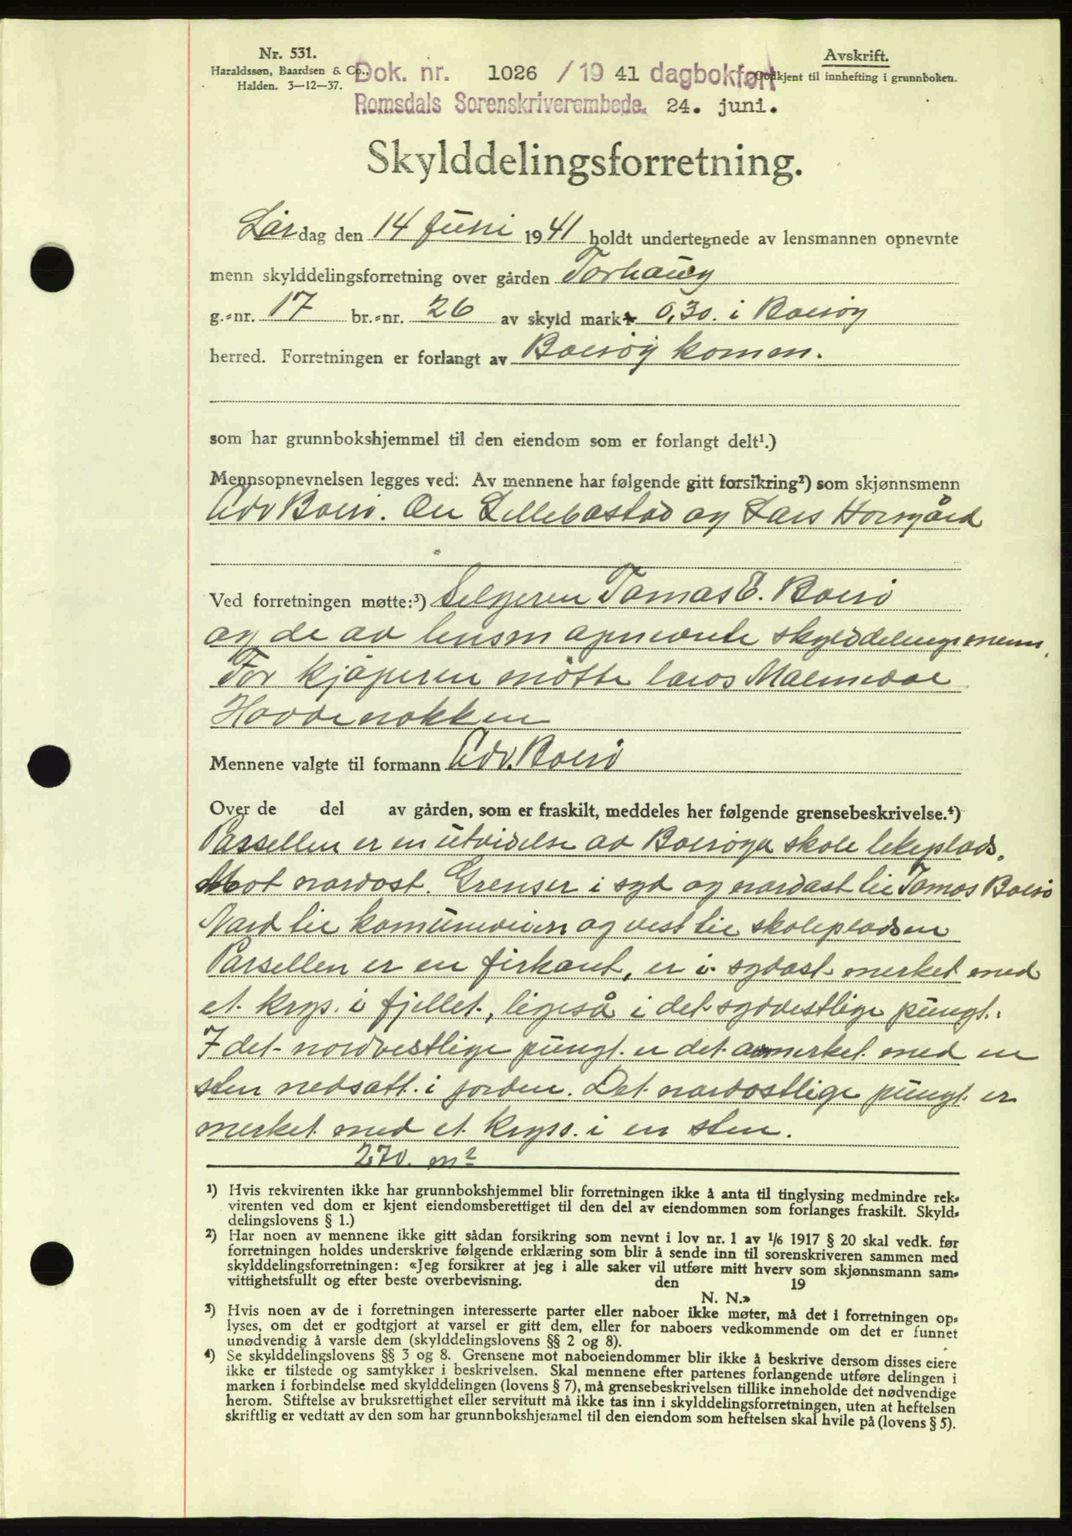 Nr. 531.
Haraldssøn, Baardsen & Co.,
Halden. 3—12—37.
Avskrift.
Godkjent til innhefting i grunnboken.
Dok. nr. 1026 /19 41 dagbokført
Romsdals Sorenskriverembede. 24. juni.
Skylddelingsforretning.
Lørdag den 14 Juni 1941 holdt undertegnede av lensmannen opnevnte
menn skylddelingsforretning over gården Torhaug
g.-nr. 17 br.-nr. 26 av skyld mark 0,30. i Bolsøy
herred. Forretningen er forlangt av Bolsøy komm.
som har grunnbokshjemmel til den eiendom som er forlangt delt¹.)
Mennsopnevnelsen legges ved: Av mennene har følgende gitt forsikring²) som skjønnsmenn
Adv Bolsø. Ole Lillebostad og Lars Horsgård
Ved forretningen møtte:³) Selgeren Tomas E. Bolsø
og de av lensm opnevnte skylddelingsmenn.
For kjøperen møtte Malmedal
Mennene valgte til formann Adv. Bolsø
Over de del av gården, som er fraskilt, meddeles her følgende grensebeskrivelse.⁴)
Parsellen er en utvidelse av Bolsøya skole lekeplads.
Mot nordost. Grenser i syd og nordost til Tomas Bolsø
Nord til komuneveien og vest til skolepladsen
Parsellen er en firkant, er i sydost merket med
et kryss i fjellet, ligeså i det sydvestlige pungt.
I det nordvestlige pungt er det merket med en
sten nedsatt i jorden. Det nordostlige pungt er
merket med et kryss i en sten.
270. m²
¹) Hvis rekvirenten ikke har grunnbokshjemmel blir forretningen ikke å anta til tinglysing medmindre rek-
virenten ved dom er kjent eiendomsberettiget til den del av eiendommen som forlanges fraskilt. Skyld-
delingslovens § 1.)
²) Har noen av mennene ikke gitt sådan forsikring som nevnt i lov nr. 1 av 1/6 1917 § 20 skal vedk. før
forretningen holdes underskrive følgende erklæring som blir å sende inn til sorenskriveren sammen med
skylddelingsforretningen: «Jeg forsikrer at jeg i alle saker vil utføre mitt hverv som skjønnsmann sam-
vittighetsfullt og efter beste overbevisning. den 19
N. N.»
³) Hvis noen av de i forretningen interesserte parter eller naboer ikke møter, må det i forretningen op-
lyses, om det er godtgjort at varsel er gitt dem, eller for naboers vedkommende om det er funnet
unødvendig å varsle dem (skylddelingslovens §§ 2 og 8).
⁴) Se skylddelingslovens §§ 3 og 8. Grensene mot naboeiendommer blir ikke å beskrive dersom disses eiere
ikke er tilstede og samtykker i beskrivelsen. Skal mennene efter partenes forlangende utføre delingen i
marken i forbindelse med skylddelingen (lovens § 7), må grensebeskrivelsen tillike inneholde det nødvendige
herom. Stiftelse av bruksrettighet eller servitutt må ikke tas inn i skylddelingsforretningen, uten at heftelsen
skriftlig er vedtatt av den som har grunnbokshjemmel til den eiendom som heftelsen skal hvile på (lovens § 5).